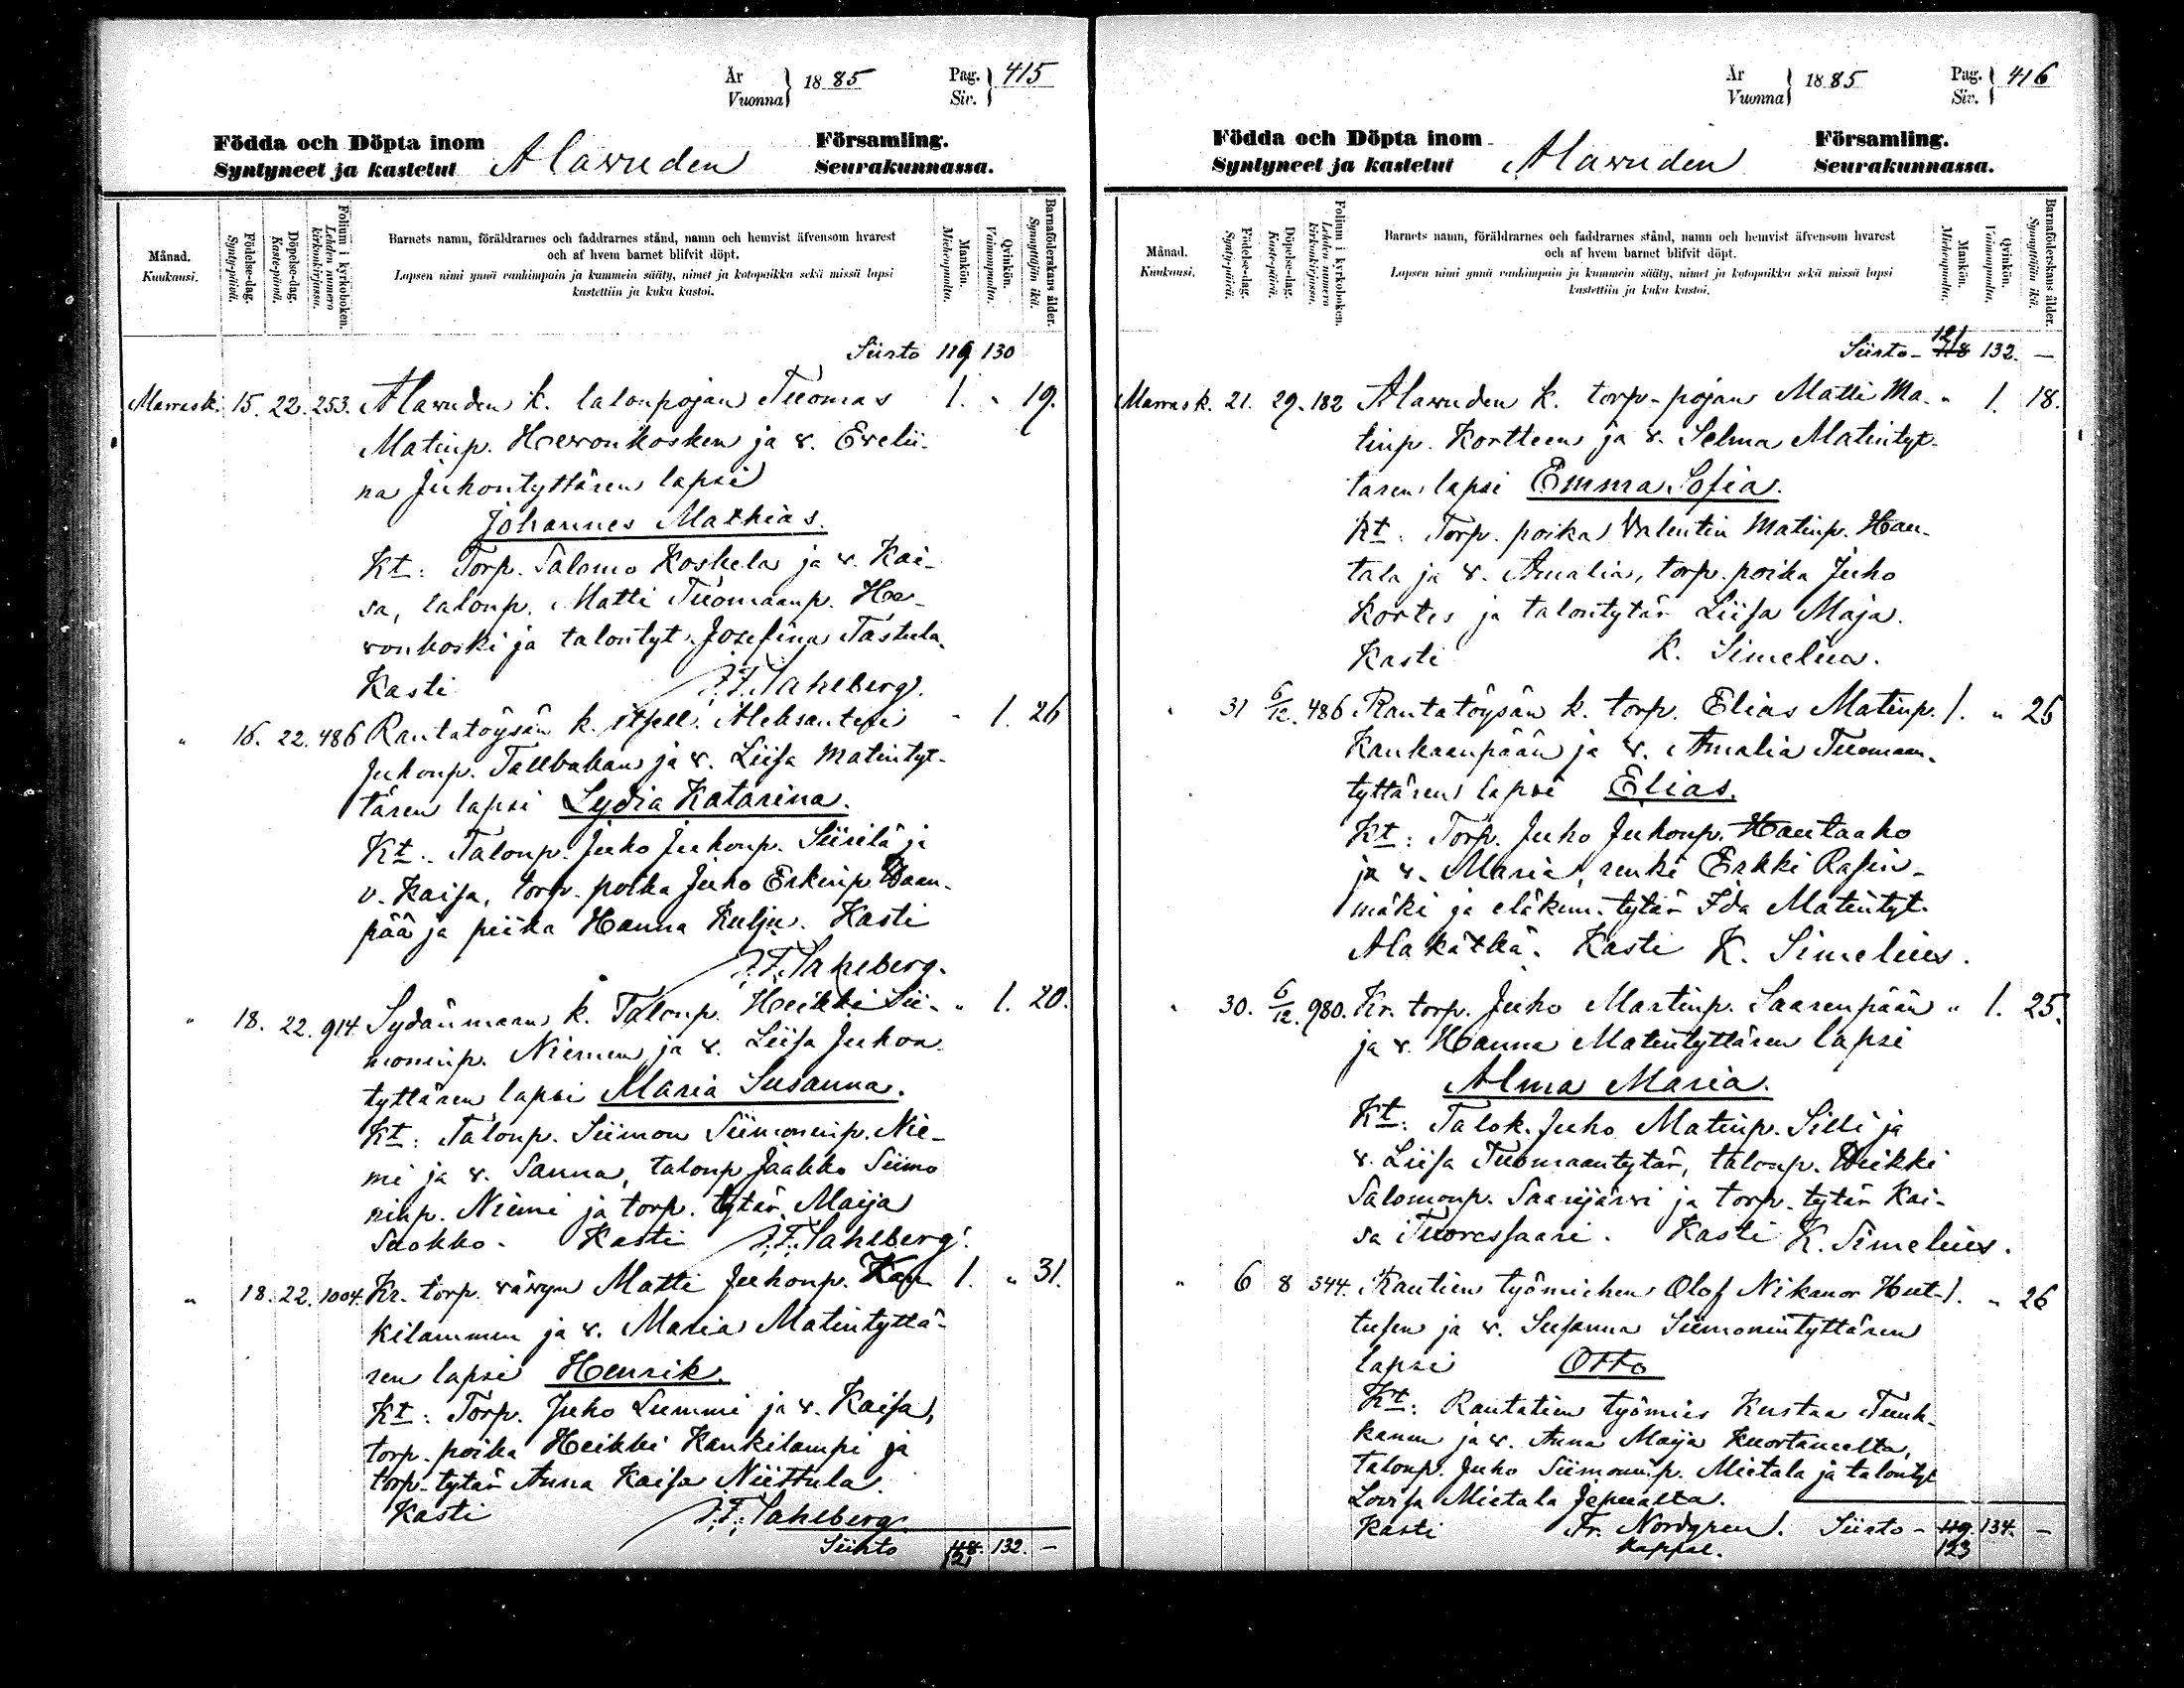 År
Vuonna
1885
Pag.
Siv.
415
Födda och Döpta inom Alawuden Församling.
Syntyneet ja kastetut Seurakunnassa.
Månad.
Kuukausi.
Födelse-dag.
Synty-päivä.
Döpelse-dag.
Kaste-päivä.
Folium i kyrkoboken.
Lehden numero kirkonkirjassa.
Barnets namn, föräldrarnes och faddrarnes stånd, namn och hemvist äfvensom hvarest
och af hvem barnet blifvit döpt.
Lapsen nimi ynnä vanhimpain ja kummein sääty, nimet ja kotopaikka sekä missä lapsi
kastettiin ja kuka kastoi.
Mankön.
Miehenpuolta.
Qvinkön.
Vaimonpuolta.
Barnaföderskans ålder.
Synnyttäjän ikä.
Siirto 119 130
Marrask. 15. 22. 253. Alawuden k. talonpojan Tuomas 1. " 19.
Matinp. Herronkosken ja v. Evelii-
na Juhontyttären lapsi
Johannes Mathias.
Kt: Torp. Salomo Koskela ja v. Kai-
sa, talonp. Matti Tuomaanp. Her-
ronkoski ja talontyt. Josefina Tastula.
Kasti J.F. Sahlberg.
" 16. 22. 486 Rantatöysän k. itsell. Aleksanteri " 1. 26
Juhonp. Tallbakan ja v. Liisa Matintyt-
tären lapsi Lydia Katarina.
Kt: Talonp. Juho Juhonp. Siirilä ja
v. Kaisa, torp. poika Juho Erkinp. Haan-
pää ja piika Hanna Kulju. Kasti
J.F. Sahlberg.
" 18. 22. 914 Sydänmaan k. Talonp. Heikki Sii- " 1. 20.
moninp. Niemen ja v. Liisa Juhon
tyttären lapsi Maria Susanna.
Kt: Talonp. Siimon Siimoninp. Nie-
mi ja v. Sanna, talonp. Jaakko Siimo
ninp. Niemi ja torp. tytär Maija
Suokko. Kasti J.F. Sahlberg.
" 18. 22. 1004. Kr. torp. vävyn Matti Juhonp. Kan 1. " 31.
kilammen ja v. Maria Matintyttä-
ren lapsi Henrik.
Kt: Torp. Juho Lummi ja v. Kaisa,
torp. poika Heikki Kankilampi ja
torp. tytär Anna Kaisa Niittula.
Kasti J.F. Sahlberg.
Siirto 118. 121 132. —
År
Vuonna
1885
Pag.
Siv.
416
Födda och Döpta inom Alawuden Församling.
Syntyneet ja kastetut Seurakunnassa.
Månad.
Kuukausi.
Födelse-dag.
Synty-päivä.
Döpelse-dag.
Kaste-päivä.
Folium i kyrkoboken.
Lehden numero kirkonkirjassa.
Barnets namn, föräldrarnes och faddrarnes stånd, namn och hemvist äfvensom hvarest
och af hvem barnet blifvit döpt.
Lapsen nimi ynnä vanhimpain ja kummein sääty, nimet ja kotopaikka sekä missä lapsi
kastettiin ja kuka kastoi.
Mankön.
Miehenpuolta.
Qvinkön.
Vaimonpuolta.
Barnaföderskans ålder.
Synnyttäjän ikä.
121
Siirto - 118 132. —
Marrask. 21. 29. 182 Alawuden k. torp. pojan Matti Ma- " 1. 18.
tinp. Kortteen ja v. Selma Matintyt-
tären lapsi Emma Sofia.
Kt: Torp. poika Valentin Matinp. Hau-
tala ja v. Amalia, torp. poika Juho
Kortes ja talontytär Liisa Maja.
Kasti K. Simelius.
" 31 6/12. 486 Rantatöysän k. torp. Elias Matinp. 1. " 26
Kankaanpään ja v. Amalia Tuomaan-
tyttären lapsi Elias.
Kt: Torp. Juho Juhonp. Hautaaho
ja v. Maria, renki Erkki Rasin-
mäki ja eläkun. tytär Ida Matintyt.
Alakätkä. Kasti K. Simelius.
" 30. 6/12. 980. Kr. torp. Juho Martinp. Saarenpään " 1. 25.
ja v. Hanna Matintyttären lapsi
Alma Maria.
Kt: Talok. Juho Matinp. Silli ja
v. Liisa Tuomaantytär, talonp. Heikki
Salomonp. Saarijärvi ja torp. tytär Kai-
sa Tuoressaari. Kasti K. Simelius.
" 6 8 544. Rautien työmiehen Olof Nikanor Hut- 1. " 26
tusen ja v. Susanna Siimonintyttären
lapsi Otto
Kt: Rautatien työmies Kustaa Tuuk-
kanen ja v. Anna Maija Kuortaneelta,
talonp. Juho Siimoninp. Mietala ja talontyt
Lovisa Mietala Jepualta.
Kasti Fr. Nordgren. Siirto - 119. 134. —
kappal. 123